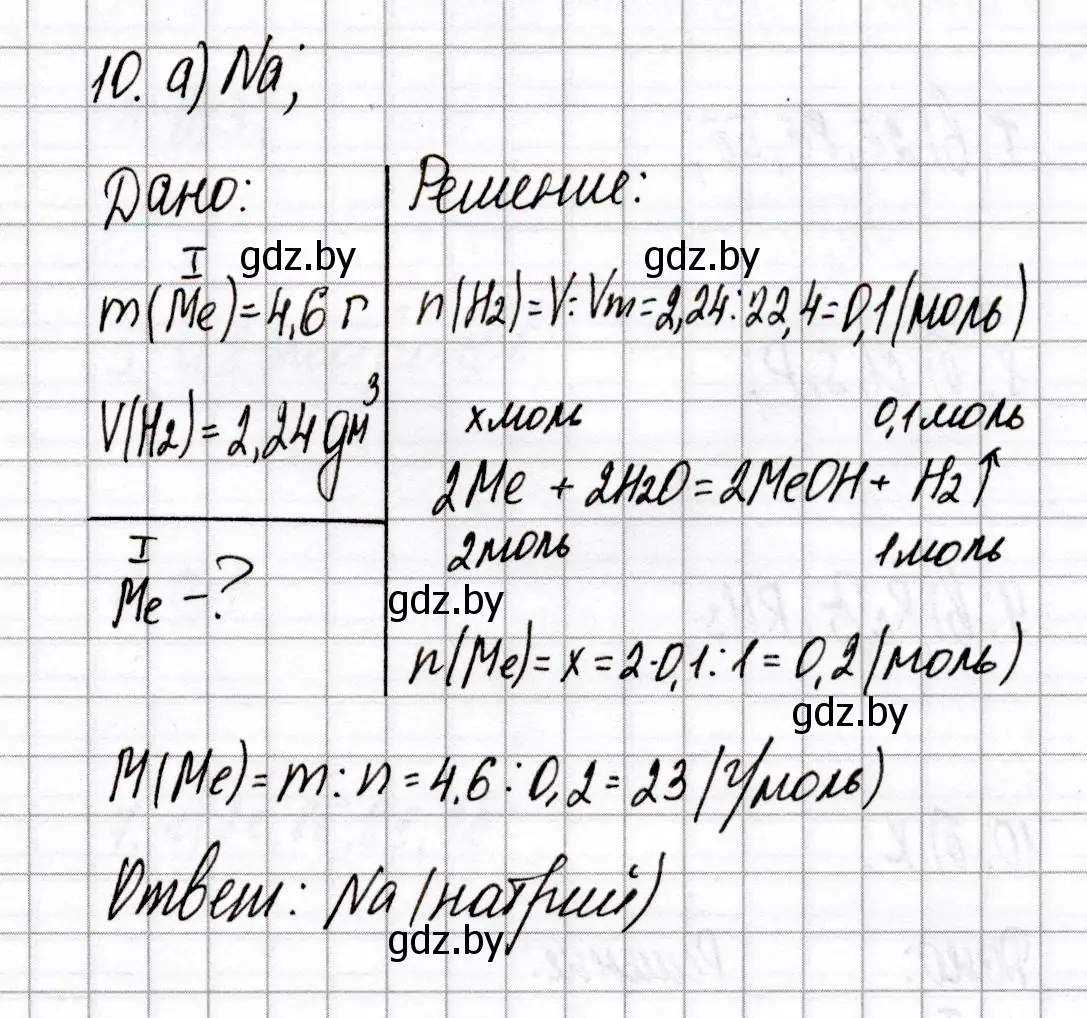 10. а) Na;
Дано:
I
m(Me)=4,6 г
V(H₂)=2,24 дм³
I
Me -?
Решение:
n(H₂)=V:Vm=2,24:22,4=0,1(моль)
x моль 0,1 моль
2Me + 2H₂O=2MeOH+ H₂↑
2 моль 1 моль
n(Me)=x=2·0,1:1=0,2(моль)
M(Me)=m:n=4,6:0,2=23(г/моль)
Ответ: Na(натрий)
gdz.by
gdz.by
gdz.by
gdz.by
gdz.by